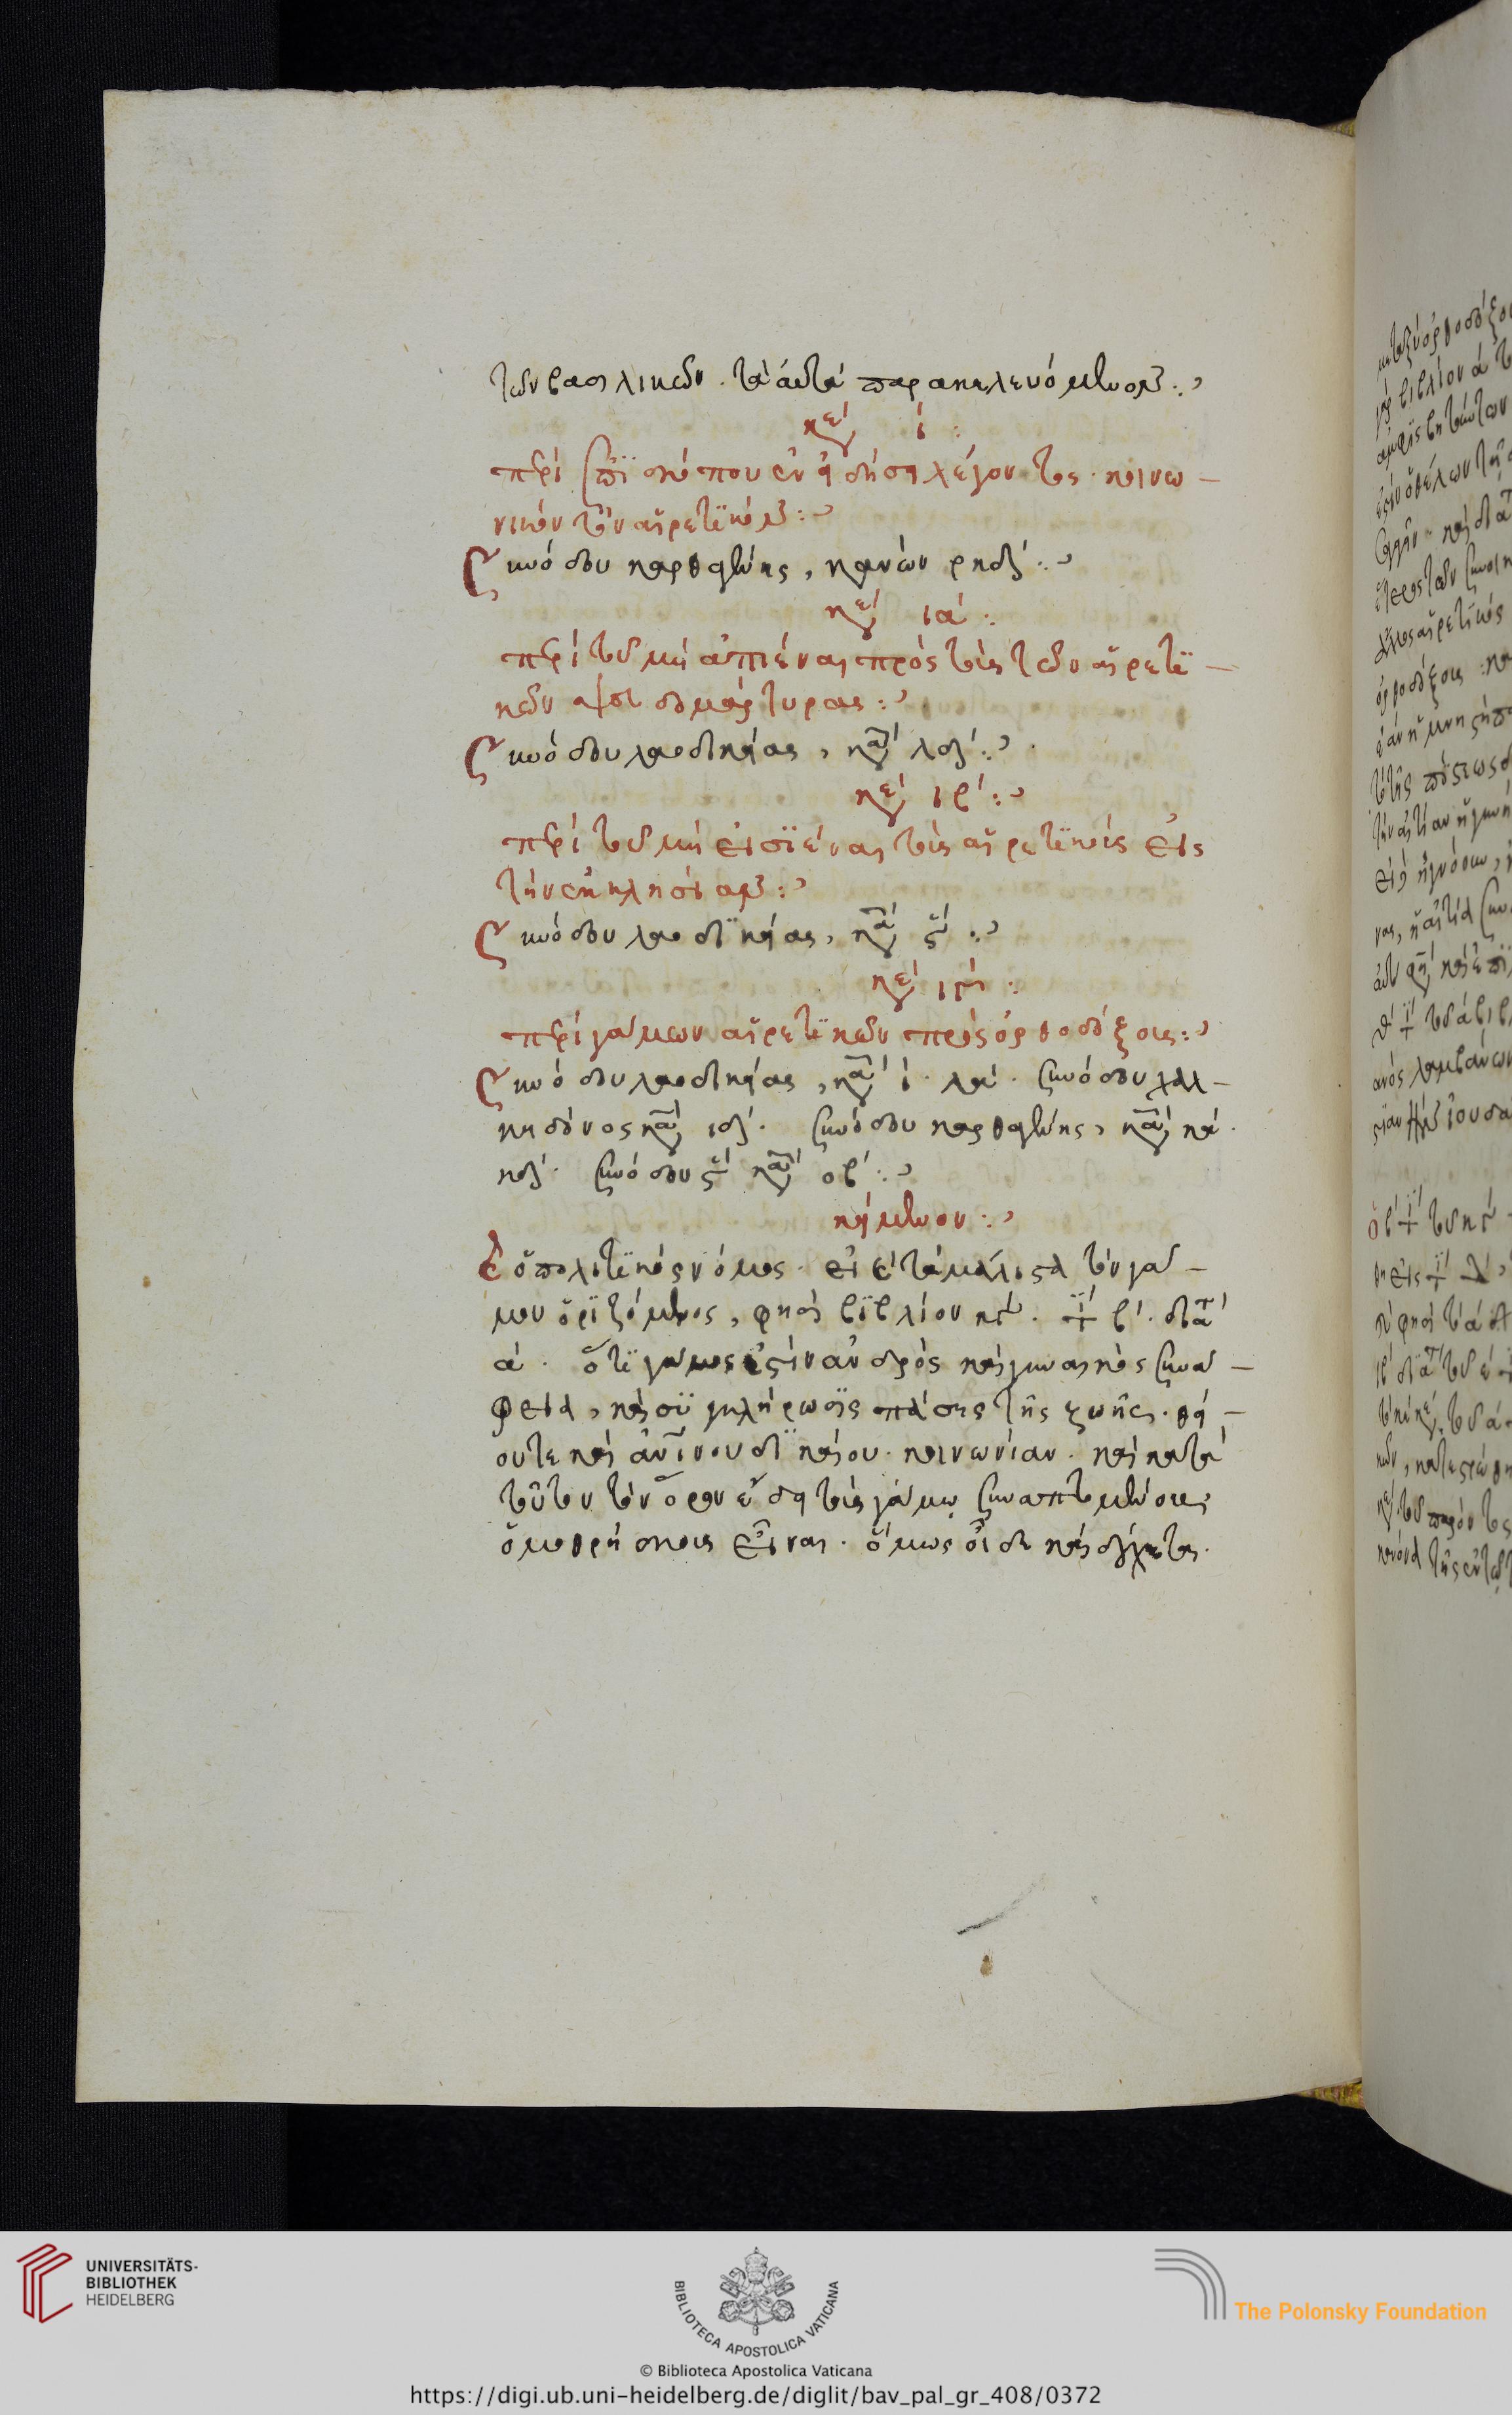 τῶν βασιλικῶν. τὰ αὐτὰ παρακελευόμενον:
κεφ ί:
περὶ ἐπισκόπου ἐν ᾗ δήσῃ λέγοντος. κοινω-
νικὸν τὸν αἱρετικόν:
Συνόδου καρθαγένης, κανὼν ρκδ΄:
κεφ ια΄:
περὶ τοῦ μὴ ἀπιέναι πρὸς τοὺς τῶν αἱρετι-
κῶν ψευδομάρτυρας:
Συνόδου λαοδικείας, καν λδ΄:
κεφ ιβ΄:
περὶ τοῦ μὴ εἰσϊέναι τοὺς αἱρετικοὺς εἰς
τὴν ἐκκλησίαν:
Συνόδου λαοδικείας, καν ϛ΄:
κεφ ιγ΄:
περὶ γάμων αἱρετικῶν πρὸς ὀρθοδόξους:
Συνόδου λαοδικείας, καν ί. λα΄. συνόδου χαλ-
κηδόνος καν ιδ΄. συνόδου καρθαγένης, καν κα΄.
κδ΄. συνόδου ϛ΄ καν οβ΄:
κείμενον:
Ὁ πολιτικὸς νόμος. εἰ τὰ μάλιστα τὸν γά-
μον ὁριζόμενος, φησὶ βιβλίον κη΄. τι δ΄. διατ
α΄. ὅτι γάμος ἐστὶν ἀνδρὸς καὶ γυναικὸς συνά-
φεια, καὶ συγκλήρωσις πάσης τῆς ζωῆς. θεί-
ου τε καὶ ἀνίνου δικαίου. κοινωνίαν. καὶ κατὰ
τοῦτον τὸν ὅρον ἔδει τοὺς γάμῳ συναπτομένους
ὁμοθρήσκους εἶναι. ὅμως οἶδε καὶ δέχεται.
UNIVERSITÄTS-
BIBLIOTHEK
HEIDELBERG
BIBLIOTECA APOSTOLICA VATICANA
© Biblioteca Apostolica Vaticana
The Polonsky Foundation
https://digi.ub.uni-heidelberg.de/diglit/bav_pal_gr_408/0372